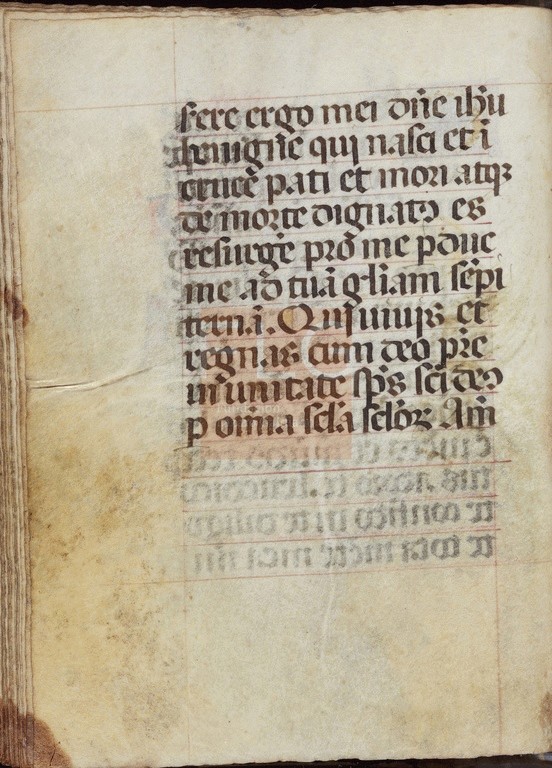 sere ergo mei dn̄e ih̄u
benign̄e qui nasci et ī
cruce pati et mori atqꝫ
de morte dignatꝰ es
resurgē pro me pduc
me ad tuā gl̄iam sēpi
ternā. Qui uiuis et
regnas cum deo pr̄e
in unitate sp̄s sc̄i deꝰ
p om̄ia sc̄la sc̄loꝝ Am̄